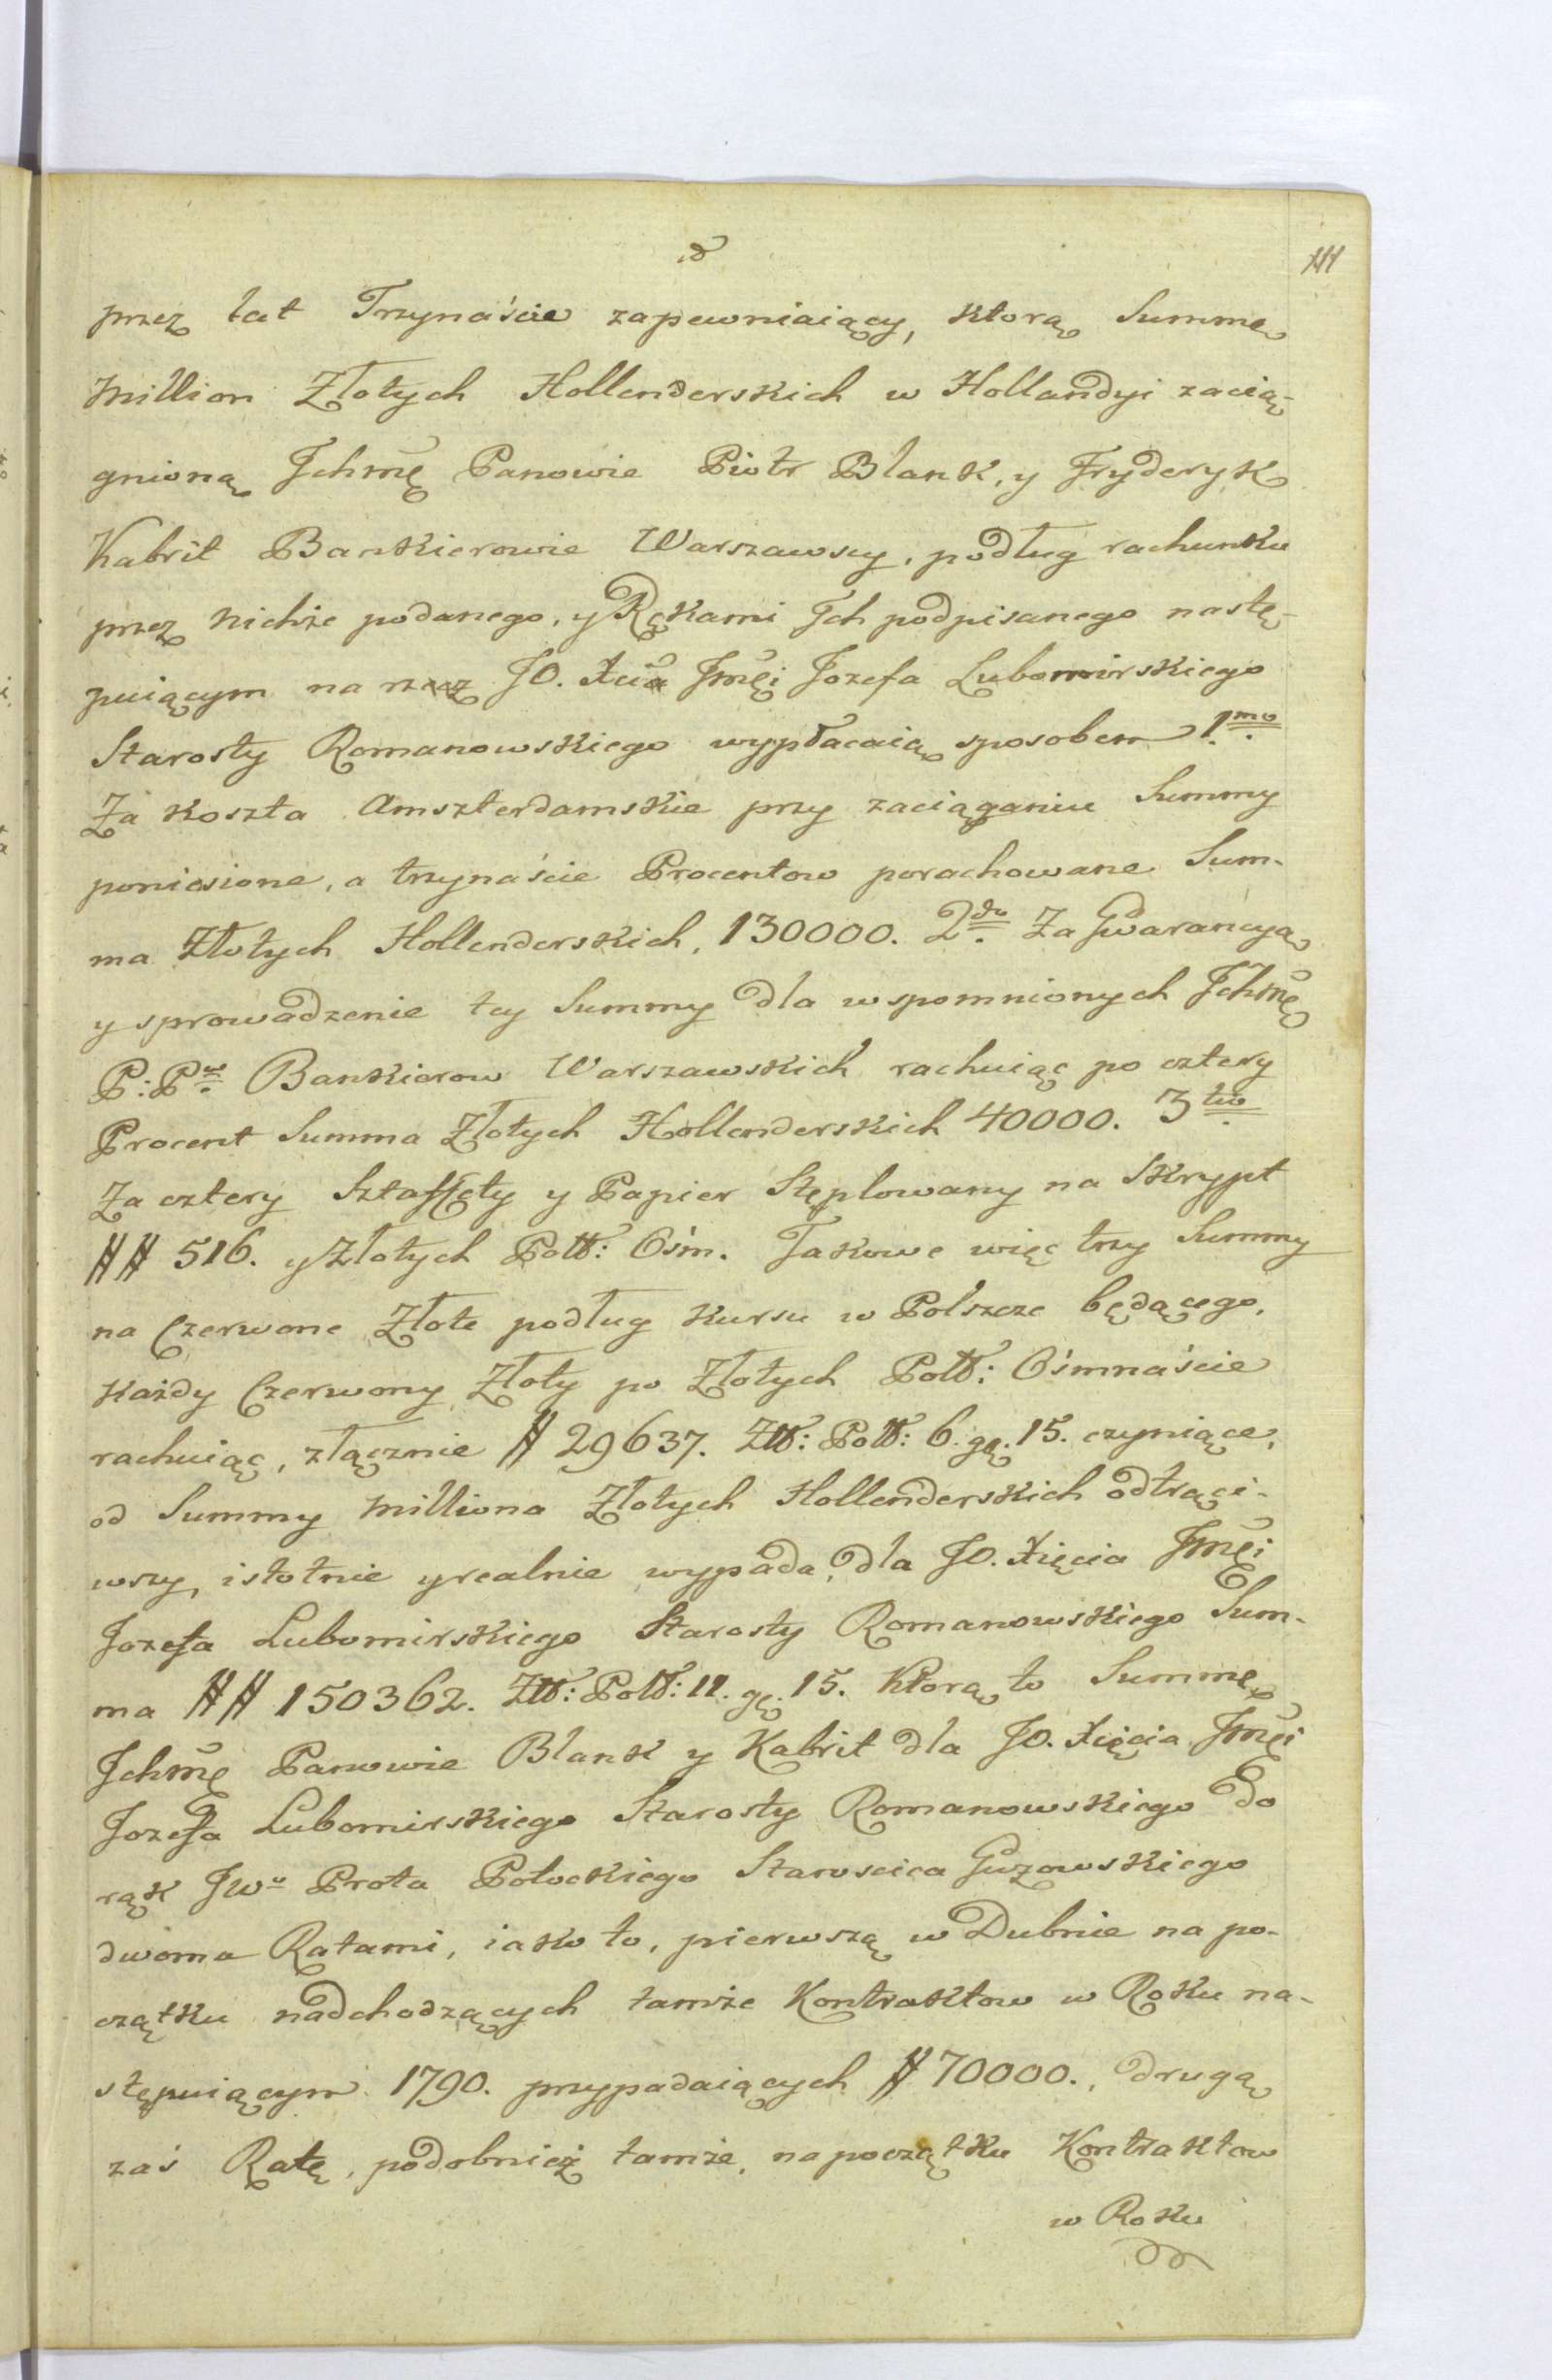 111
przez lat Trzynaście zapewniaiący, ktorą Summę
Million Złotych Hollenderskich w Hollandyi zacią-
gnioną Ichmę Panowie Piotr Blank, y Fryderyk
Kabrit Bankierowie Warszawscy, podług rachunku
przez nichże podanego, y Rękami Ich podpisanego nastę-
puiącym na rzecz JO. Xcia Jmci Jozefa Lubomirskiego
Starosty Romanowskiego wypłacaią sposobem 1.mo
Za koszta Amszterdamskie przy zaciąganiu Summy
poniesione, a trzynaście Procentow porachowane Sum-
ma Złotych Hollenderskich, 130000. 2.do Za Gwarancyą
y sprowadzenie tey Summy dla wspomnionych Ichmę
P: P.w Bankierow Warszawskich rachuiąc po cztery
Procent Summa Złotych Hollenderskich 40000. 3.tio
Za cztery Sztaffety y Papier Stęplowany na Skrypt
## 516. y Złotych Poll: Ośm. Takowe więc trzy Summy
na Czerwone Złote podług kursu w Polszcze będącego,
każdy Czerwony Złoty po Złotych Poll: Ośmnaście
rachuiąc, złącznie # 29637. Zll: Poll: 6. gę. 15. czyniące,
od Summy Milliona Złotych Hollenderskich odtrąci-
wszy, istotnie y realnie wypada, dla JO. Xięcia Jmci
Jozefa Lubomirskiego Starosty Romanowskiego Sum-
ma ## 150362. Zll: Poll: 11. gę. 15. Ktorą to Summę
Ichmę Panowie Blank y Kabrit dla JO. Xięcia Jmci
Jozefa Lubomirskiego Starosty Romanowskiego do
rąk JWo Prota Potockiego Staroscica Guzowskiego
dwoma Ratami, iako to, pierwszą w Dubnie na po-
czątku nadchodzących tamże Kontraktow w Roku na-
stępuiącym 1790. przypadaiących # 70000., drugą
zaś Ratę, podobnież tamże, na początku Kontraktow
w Roku